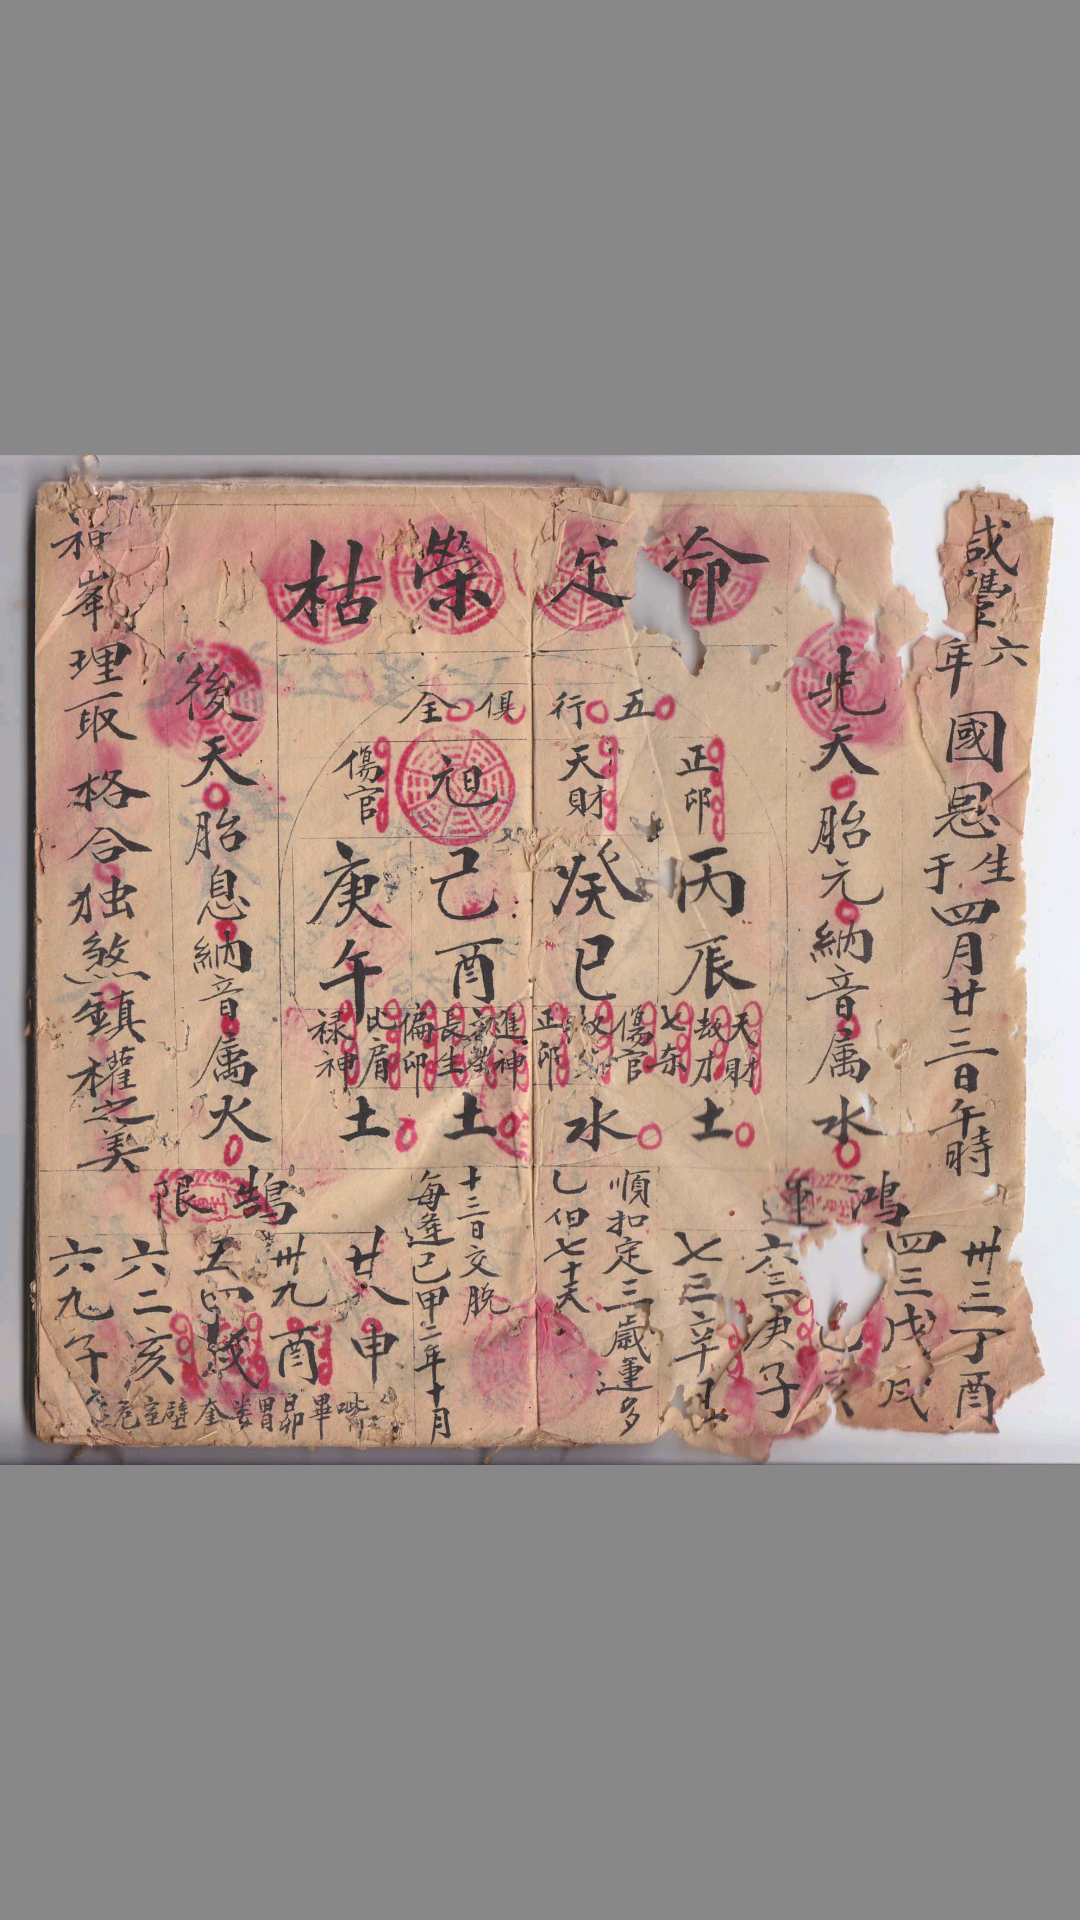 咸豐六年國恩生于四月廿三日午時
命定榮枯
先天胎元納音属水
五行俱全
正印
天財
元旦
傷官
丙辰
癸巳
己酉
庚午
天財
劫才
七杀
傷官
正印
進神
長生
偏印
比肩
禄神
土
水
土
土
後天胎息納音属火
峯理取格合独煞鎮權之美
鴻運
卅三丁酉
四三戊戌
己亥
六三庚子
七三辛丑
順扣定三歲運多
七伯七十天
十三日交脱
每逢己甲二年十月
鵠限
廿八申
卅九酉
五四戌
六二亥
六九子
觜畢昴胃娄奎壁室危